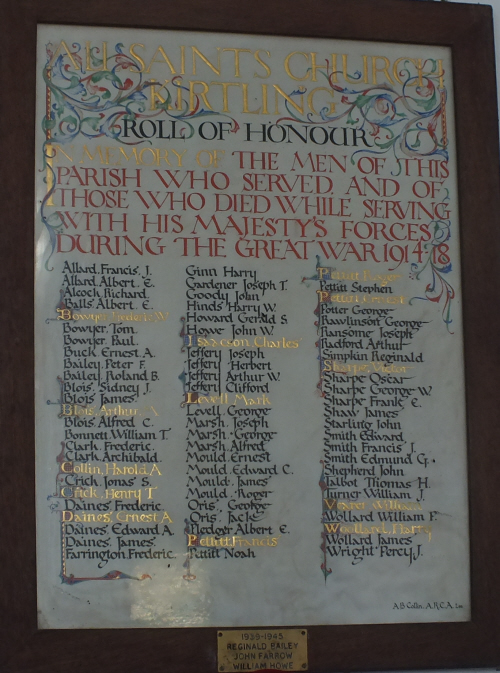 ALL SAINTS CHURCH
KIRTLING
ROLL OF HONOUR
IN MEMORY OF THE MEN OF THIS
PARISH WHO SERVED AND OF
THOSE WHO DIED WHILE SERVING
WITH HIS MAJESTY'S FORCES
DURING THE GREAT WAR 1914-18
Allard, Francis, J.
Allard, Albert E.
Alcock Richard
Balls, Albert E.
Bowyer, Frederic W.
Bowyer, Tom
Bowyer, Paul
Buck Ernest A.
Bailey, Peter F.
Bailey, Roland B.
Blois, Sidney J.
Blois, James
Blois, Arthur
Blois, Alfred C.
Bonnett William T.
Clark, Frederic
Clark, Archibald
Collin, Harold A
Crick, Jonas S.
Crick, Henry T
Daines, Frederic
Daines, Ernest A
Daines, Edward A
Daines, James
Farrington Frederic
Ginn Harry
Gardener Joseph T.
Goody John
Hinds Harry W.
Howard Gerald S.
Howe John W.
Isaacson, Charles
Jeffery Joseph
Jeffery Herbert
Jeffery Arthur W.
Jeffery Clifford
Levell Mark
Levell George
Marsh Joseph
Marsh George
Marsh Alfred
Mould Ernest
Mould, Edward C.
Mould, James
Mould, Roger
Oris, George
Oris, Jack
Pledger Albert E.
Pettitt, Francis
Pettitt Noah
Pettitt
Pettitt Stephen
Pettitt
Potter George
Rawlinson George
Ransome Joseph
Radford Arthur
Simpkin Reginald
Sharpe, Victor
Sharpe Oscar
Sharpe George W.
Sharpe Frank E.
Shaw James
Starling John
Smith Edward
Smith Francis J.
Smith Edmund G.
Shepherd John
Talbot Thomas H.
Turner William J.
William
Wollard William F.
Woollard, Harry
Wollard James
Wright Percy J.
A.B Collin, A.R.C.A.
1939-1945
REGINALD BAILEY
JOHN FARROW
WILLIAM HOWE